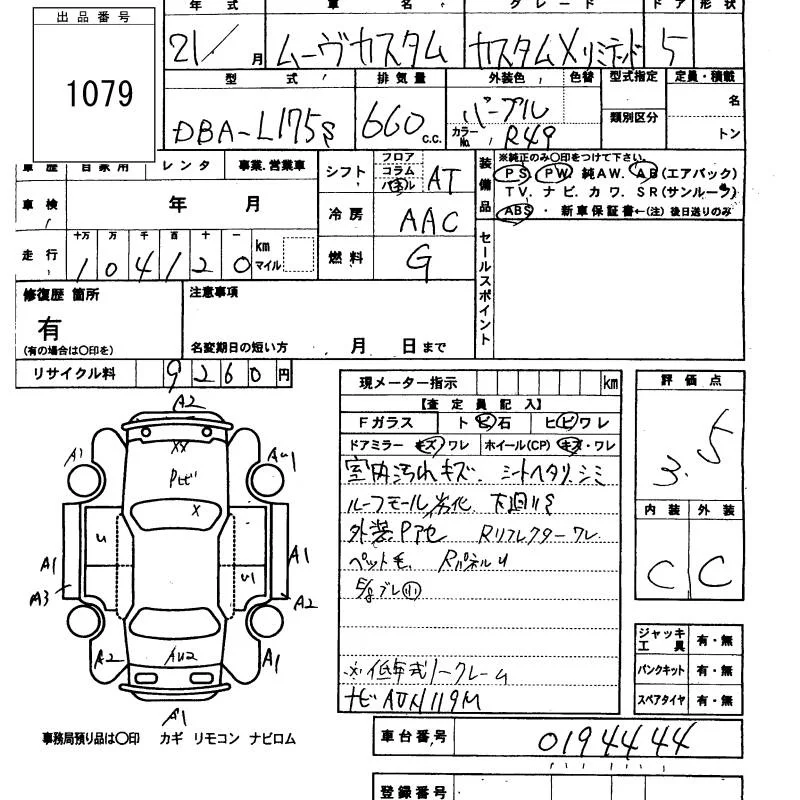 出品番号
1079
年式 車名 グレード ドア 形状
21/ 月 ムーヴカスタム カスタムXリミテッド 5
型式 排気量 外装色 色替 型式指定 定員・積載
DBA-L175S 660 c.c. パープル カラーNo. R49 類別区分 名 トン
車歴 自家用 レンタ 事業.営業車
シフト フロア コラム パネル AT
装備品 ※純正のみ○印をつけて下さい。
PS. PW. 純AW. AB(エアバック)
TV. ナビ. カワ. SR(サンルーフ)
ABS・ 新車保証書←(注)後日送りのみ
車検 年 月
冷房 AAC
走行 十万 万 千 百 十 一 km マイル
104120
燃料 G
セールスポイント
修復歴 箇所
有
(有の場合は○印を)
注意事項
名変期日の短い方 月 日まで
リサイクル料 9260円
現メーター指示 km
【査定員記入】
Fガラス ト ビ 石 ヒビワレ
ドアミラー キズ ワレ ホイール(CP) キズ・ワレ
室内汚れキズ. シートヘタリ.シミ
ルーフモール劣化 下廻りS
外装P7色 Rリフレクターワレ
ペット毛. RパネルU
E/gブレ小
※低年式ノークレーム
ナビAUN119M
評価点
3.5
内装 外装
C C
ジャッキ工具 有・無
パンクキット 有・無
スペアタイヤ 有・無
A2
XX
Pセビ
A1 AU1
X
U
U1
A1 A1
A3 A2
A2 AU2 A1
A1
事務局預り品は○印 カギ リモコン ナビロム
車台番号 0194444
登録番号